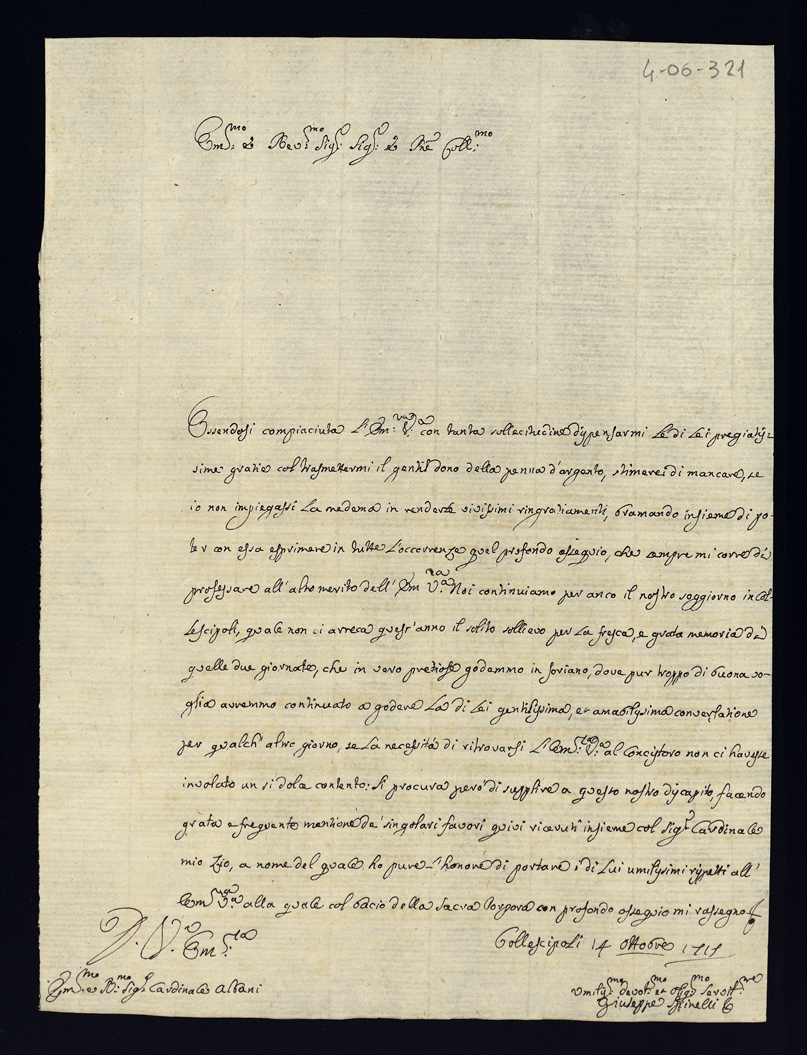 4-06-321
Em:mo e Rev:mo Sig:r Sig:r e Pne Coll:mo
Essendosi compiaciuta l'Em:za V:a con tanta sollecitudine dispensarmi le di lei pregiatis-
sime gratie col trasmettermi il gentil dono della penna d'argento, stimerei di mancare, se
io non impiegassi la medema in renderle vivissimi ringratiamenti, bramando insieme di po-
ter con essa esprimere in tutte l'occorrenze quel profondo ossequio, che sempre mi corre di
professare all'alto merito dell'Em:za V:a Noi continuiamo per anco il nostro soggiorno in Col-
lescipoli, quale non ci arreca quest'anno il solito sollievo per la fresca, e grata memoria di
quelle due giornate, che in vero pretiose godemmo in Soriano, dove pur troppo di buona vo-
glia avremmo continuato a godere la di lei gentilissima, et amabilissima conversatione
per qualch'altro giorno, se la necessità di ritrovarsi l'Em:za V:a al Concistoro non ci havesse
involato un sì dolce contento: Si procura però di supplire a questo nostro discapito, facendo
grata e frequente mentione de' singolari favori quivi ricevuti insieme col Sig:r Cardinale
mio Zio, a nome del quale ho pure l'honore di portare i di lui umilissimi rispetti all'
Em:za V:a alla quale col bacio della Sacra Porpora con profondo ossequio mi rassegno
D. V:a Em:za
Collescipoli 14 Ottobre 1715
Em:mo e R:mo Sig:r Cardinale Albani
Umilis:mo devot:mo et oblig:mo Servit:re
Giuseppe Spinelli